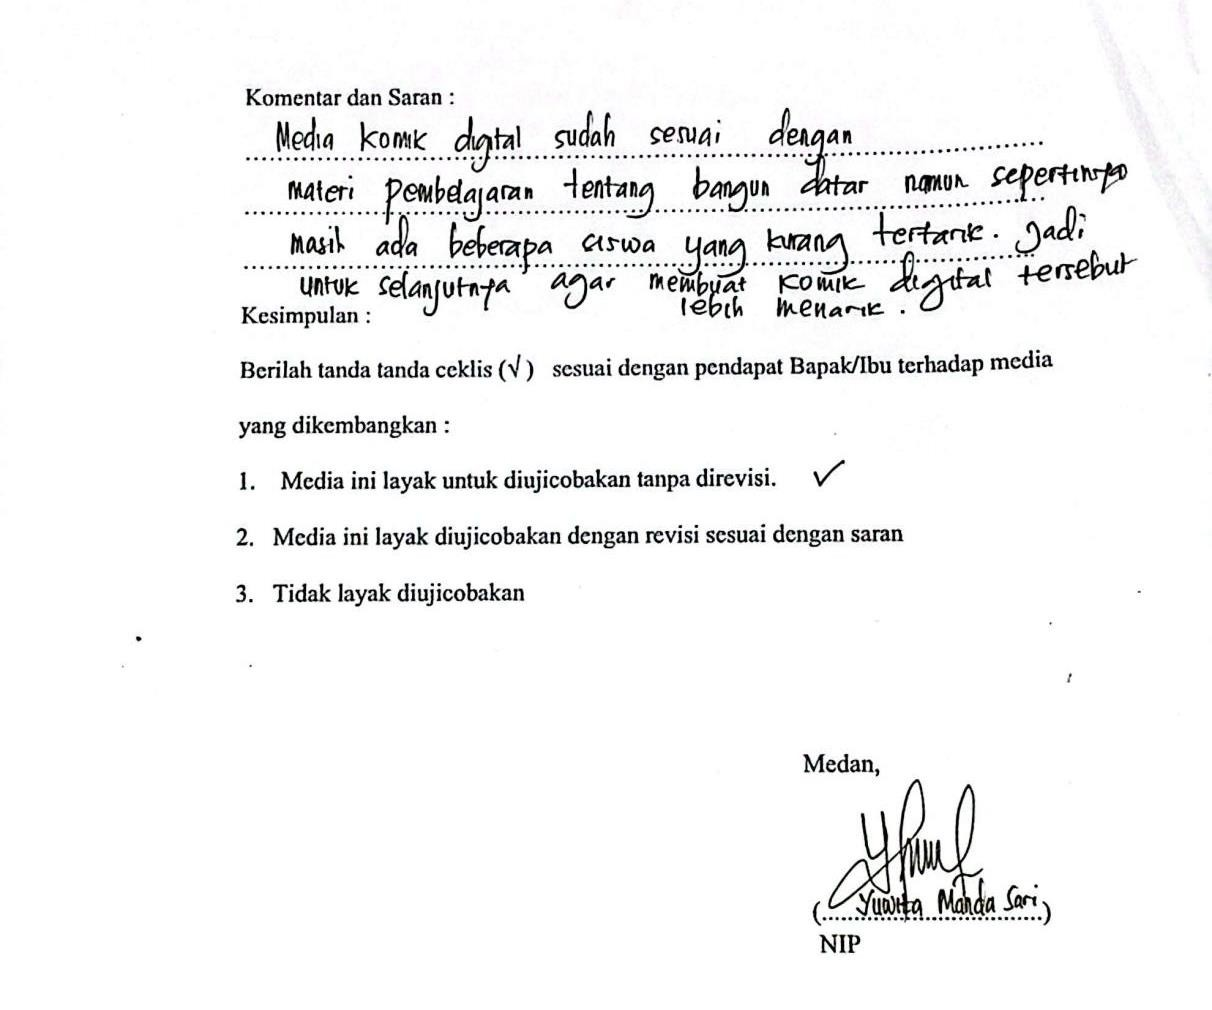 Komentar dan Saran :
Media komik digital sudah sesuai dengan
materi pembelajaran tentang bangun datar namun sepertinya
masih ada beberapa siswa yang kurang tertarik. Jadi
untuk selanjutnya agar membuat komik digital tersebut
lebih menarik.
Kesimpulan :
Berilah tanda tanda ceklis (√) sesuai dengan pendapat Bapak/Ibu terhadap media
yang dikembangkan :
1. Media ini layak untuk diujicobakan tanpa direvisi. ✓
2. Media ini layak diujicobakan dengan revisi sesuai dengan saran
3. Tidak layak diujicobakan
Medan,
(Yuwita Manda Sari)
NIP